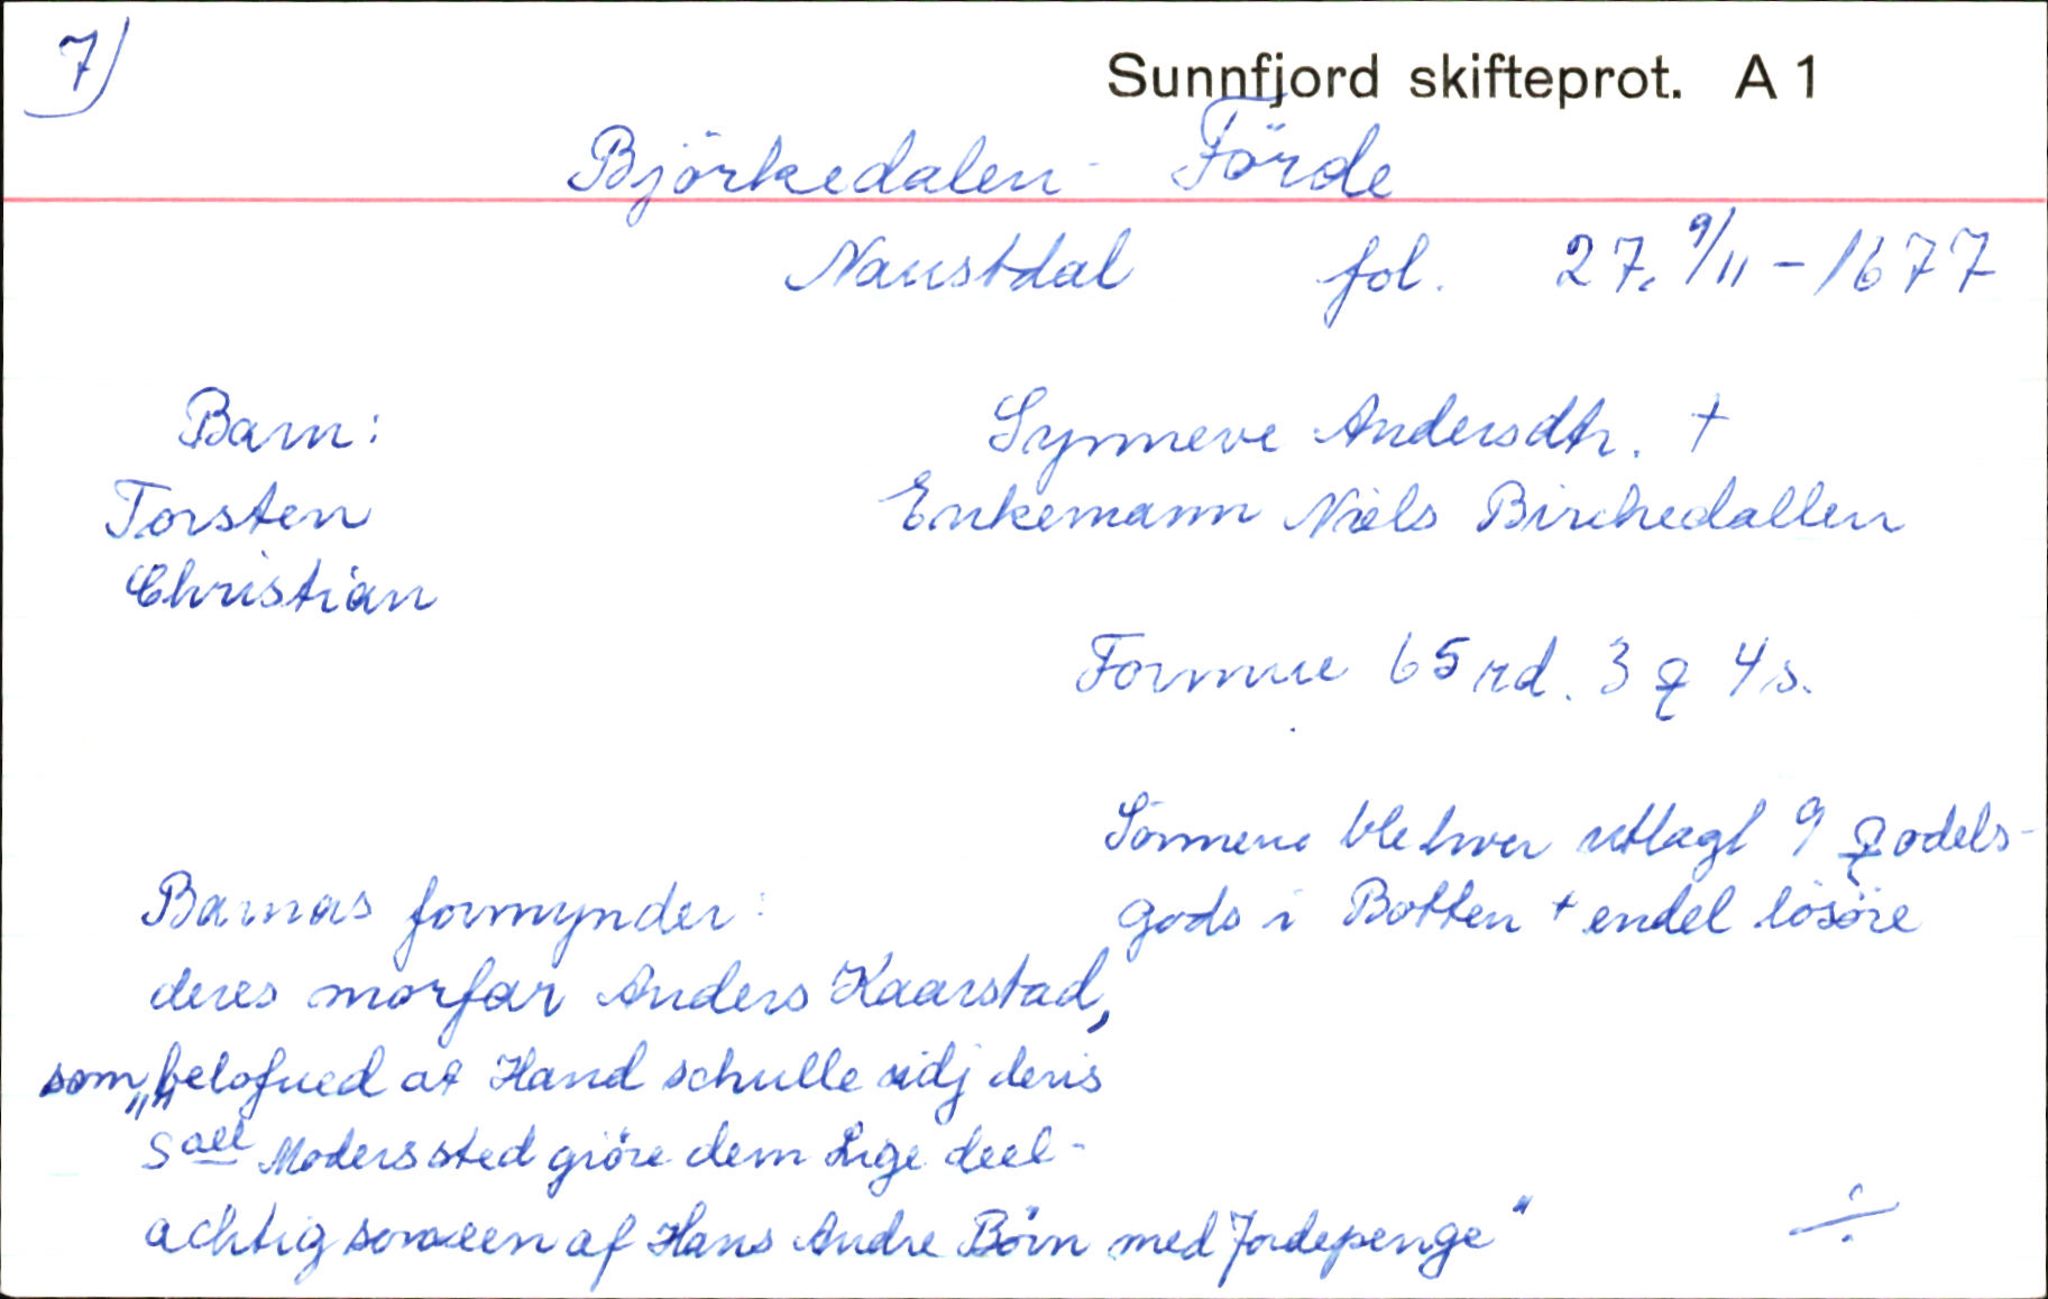 7)
Sunnfjord skifteprot. A 1
Björkedalen - Förde
Naustdal fol. 27. 9/11 - 1677
Barn:
Torsten
Christian
Synneve Andersdtr. †
Enkemann Niels Birchedallen
Formue 65 rd. 3 ꝗ 4 s.
Sönnene ble hver utlagt 9 ꝗ odels-
gods i Botten + endel lösöre
Barnas formynder:
deres morfar Anders Kaarstad,
som „belofued at Hand schulle udj deris
Sall Moders sted giöre dem Lige deel-
achtig som een af Hans Andre Börn med Jordepenge"
÷